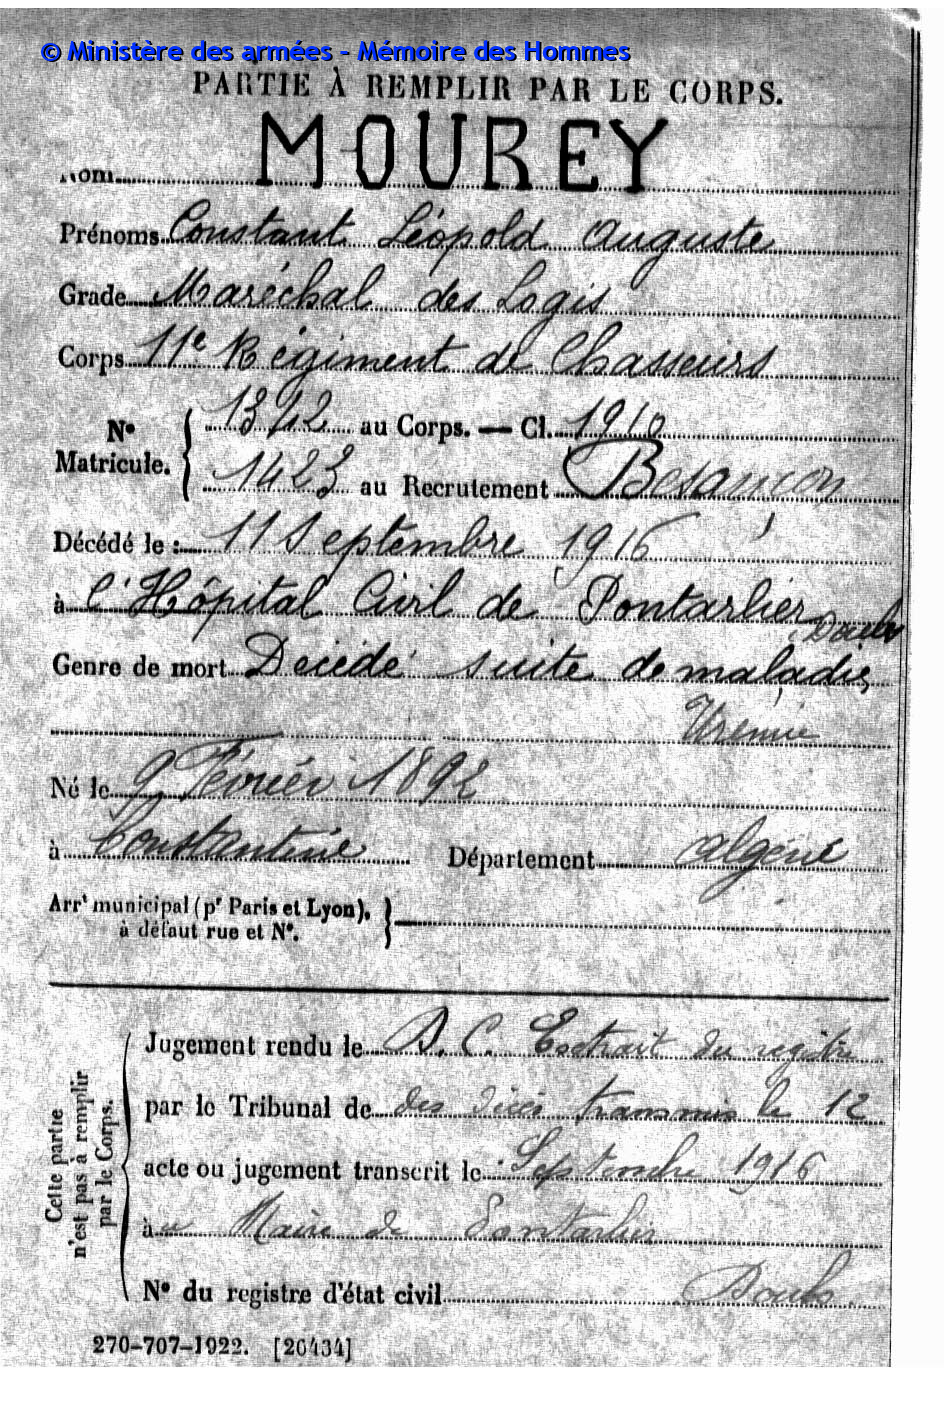 © Ministère des armées - Mémoire des Hommes
PARTIE À REMPLIR PAR LE CORPS.
Nom MOUREY
Prénoms Constant Léopold Auguste
Grade Maréchal des Logis
Corps 11e Régiment de Chasseurs
N° Matricule. { 1342 au Corps. — Cl. 1910
1423 au Recrutement Besançon
Décédé le : 11 Septembre 1916
à l'Hôpital Civil de Pontarlier Doubs
Genre de mort Décédé suite de maladie,
Urémie
Né le 9 Février 1892
à Constantine Département Algérie
Arrt municipal (pr Paris et Lyon), }
à défaut rue et N°.
Cette partie n'est pas à remplir par le Corps.
Jugement rendu le D. C. Extrait du registre
par le Tribunal de des décès transmis le 12
acte ou jugement transcrit le Septembre 1916
à u Maire de Pontarlier
N° du registre d'état civil Doubs
270-707-1922. [26434]